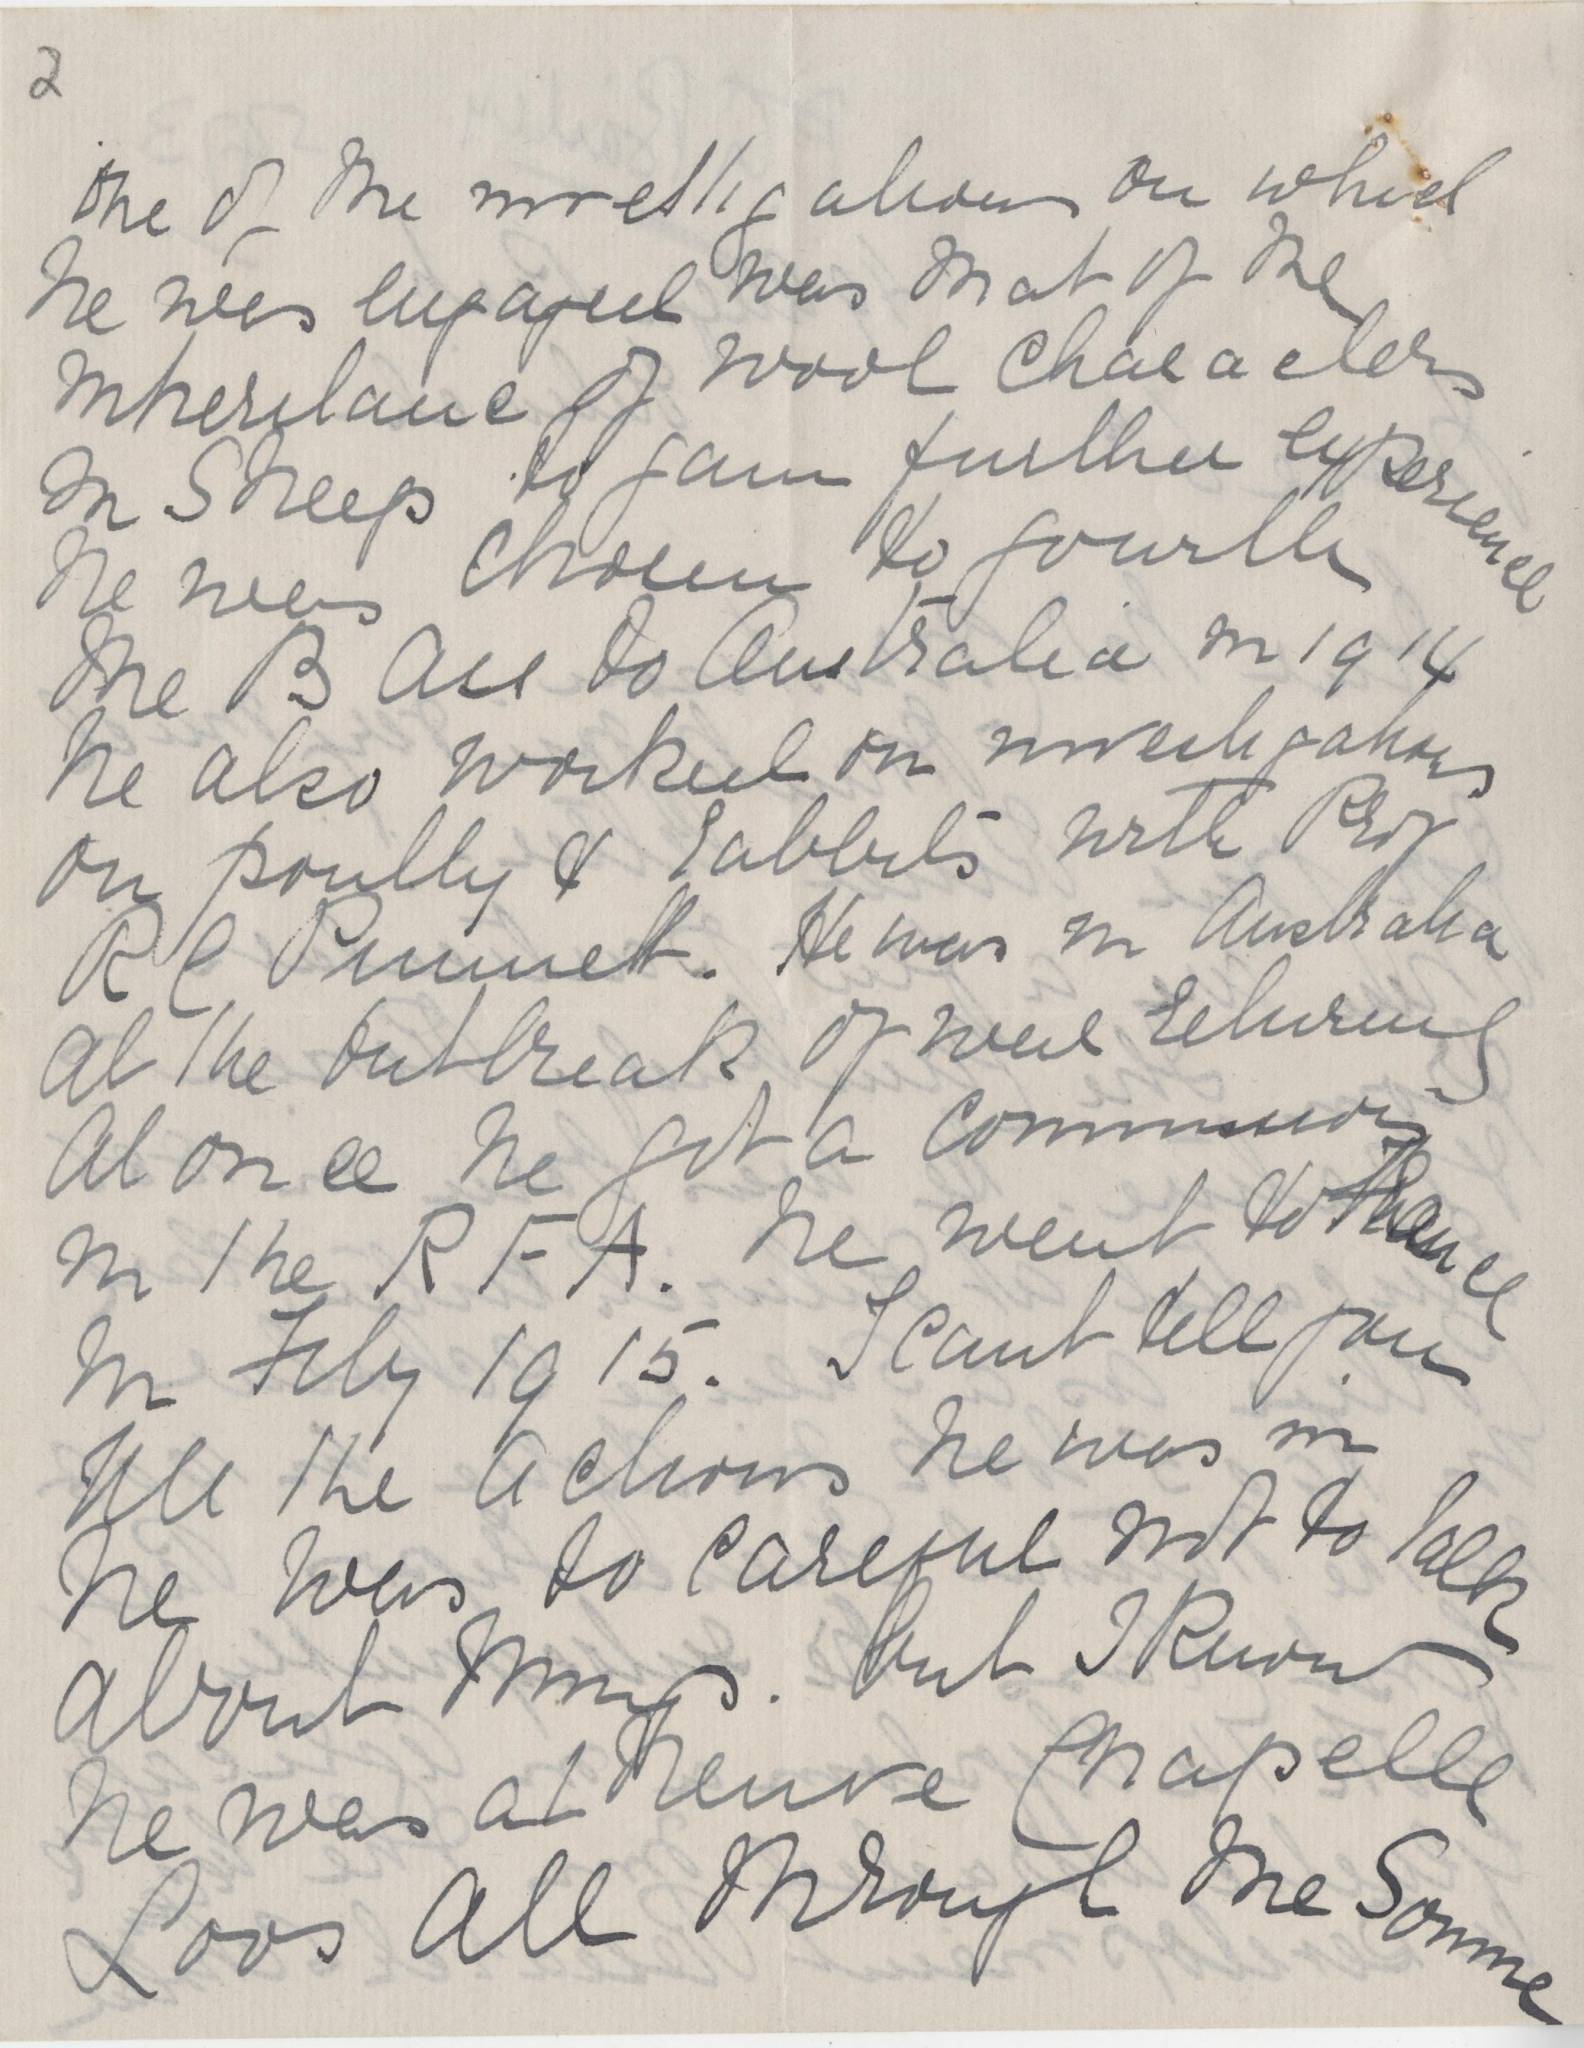 2
One of the investigations on which
he was engaged was that of the
inheritance of wool characters
in Sheep to gain further experience
he was chosen to go with
the B Ass to Australia in 1914
he also worked on investigations
on poultry & rabbits with Prof
R C Punnett. He was in Australia
at the outbreak of war returning
at once he got a commission
in the R F A. he went to France
in July 1915. I cant tell you
all the actions he was in
he was to careful not to talk
about things. but I know
he was at Neuve Chapelle
Loos all through the Somme